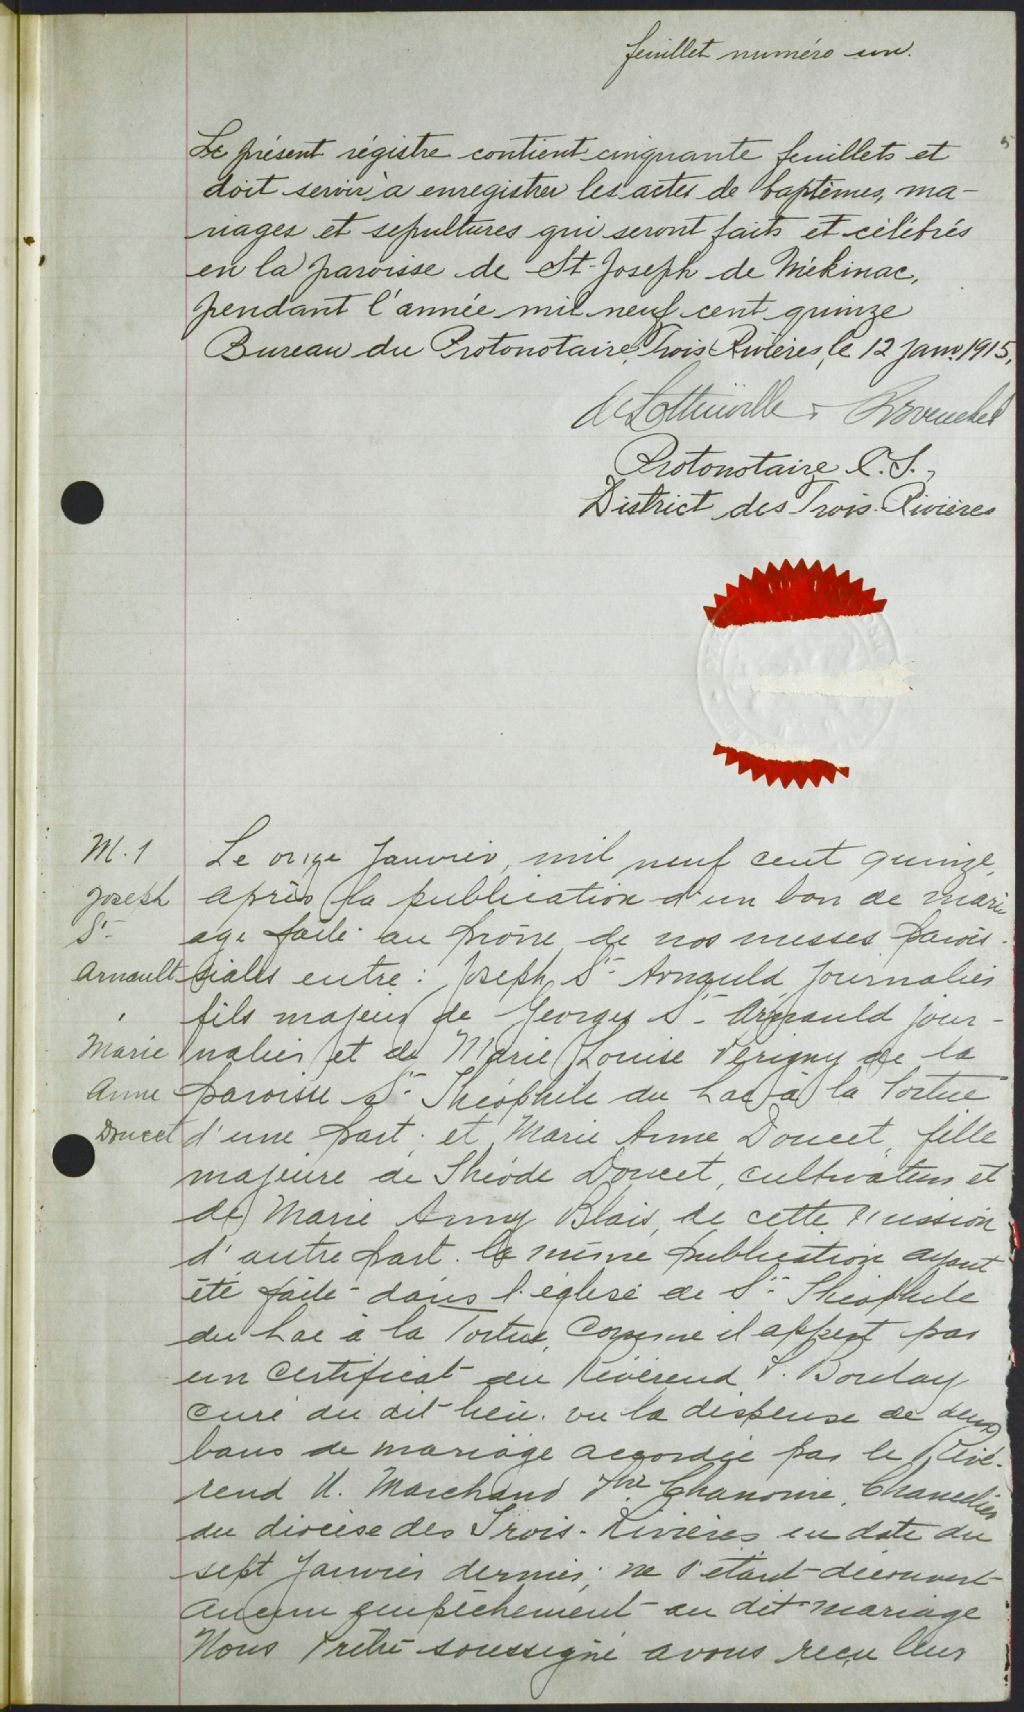 feuillet numéro un.
Le présent régistre contient cinquante feuillets et
doit servir à enregistrer les actes de baptêmes, ma-
riages et sepultures qui seront faits et célébrés
en la paroisse de St-Joseph de Mékinac,
pendant l'année mil neuf cent quinze
Bureau du Protonotaire, Trois Rivières, le 12 janv. 1915.
Protonotaire C.S.,
District des Trois-Rivières
M. 1
Joseph
St-
Arnault
Marie
Anne
Doucet
Le onze Janvier, mil neuf cent quinze,
après la publication d'un ban de mari
age faite au prône de nos messes parois-
siales entre: Joseph St- Arnauld, Journalier
fils majeur de Georges St- Arnauld jour-
nalier et de Marie Louise Verigny de la
paroisse St- Théophile du Lac à la Tortue
d'une part; et Marie Anne Doucet, fille
majeure de Théode Doucet, cultivateur et
de Marie Anny Blais, de cette Mission
d'autre part. la même publication ayant
été faite dans l'église de St- Théophile
du Lac à la Tortue, comme il appert par
un certificat du Révérend P. Boulay
curé du dit lieu. vu la dispense de deux
bans de mariage accordée par le Révé-
rend U. Marchand Ptre Chanoine, Chancelier
du diocèse des Trois-Rivières en date du
sept Janvier dernier; ne s'étant découvert
aucun empêchement au dit mariage
Nous Prêtre soussigné avons reçu leur